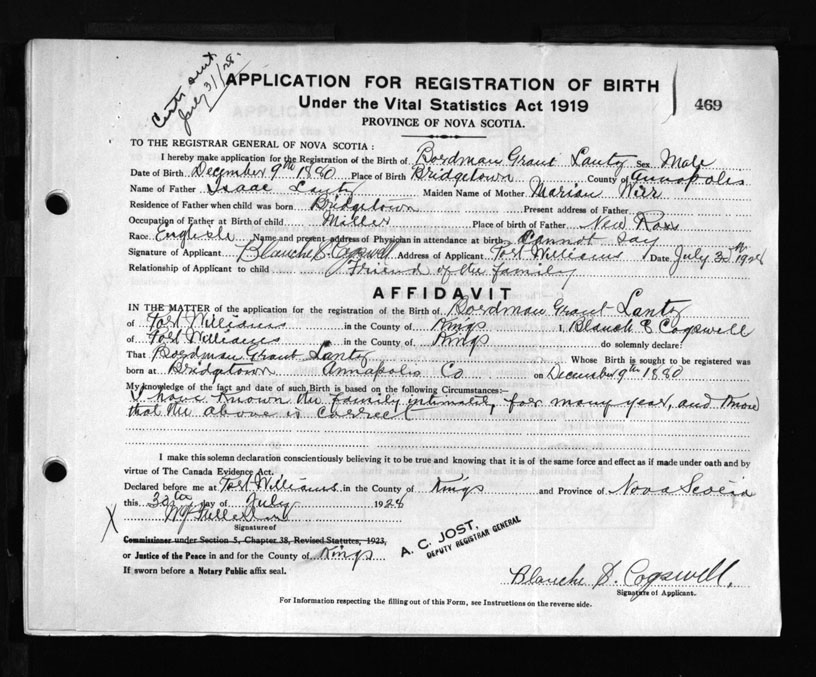 Certs sent
July 31/28.
APPLICATION FOR REGISTRATION OF BIRTH
Under the Vital Statistics Act 1919
469
PROVINCE OF NOVA SCOTIA.
TO THE REGISTRAR GENERAL OF NOVA SCOTIA:
I hereby make application for the Registration of the Birth of Bordman Grant Lantz Sex Male
Date of Birth December 9th 1880 Place of Birth Bridgetown County of Annapolis
Name of Father Isaac Lantz Maiden Name of Mother Marian
Residence of Father when child was born Bridgetown Present address of Father
Occupation of Father at Birth of child Miller Place of Birth of Father New Ross
Race English Name and present address of Physician in attendance at birth Cannot say
Signature of Applicant Blanche S. Cogswell Address of Applicant Port Williams Date July 1928
Relationship of Applicant to child Friend of the family
AFFIDAVIT
IN THE MATTER of the application for the registration of the Birth of Bordman Grant Lantz
of Port Williams in the County of Kings I, Blanch Cogswell
of Port Williams in the County of Kings do solemnly declare:
That Bordman Grant Lantz Whose Birth is sought to be registered was
born at Bridgetown Annapolis Co on December 9th 1880
My knowledge of the fact and date of such Birth is based on the following Circumstances:—
I have known the family intimately, for many year, and know
that the above is correct
I make this solemn declaration conscientiously believing it to be true and knowing that it is of the same force and effect as if made under oath and by
virtue of The Canada Evidence Act.
Declared before me at Port Williams in the County of Kings and Province of Nova Scotia
this day of July 1928
X
Signature of
Commissioner under Section 5, Chapter 38, Revised Statutes, 1923,
or Justice of the Peace in and for the County of Kings
A. C. JOST,
DEPUTY REGISTRAR GENERAL
If sworn before a Notary Public affix seal.
Blanche S. Cogswell.
Signature of Applicant.
For Information respecting the filling out of this Form, see Instructions on the reverse side.